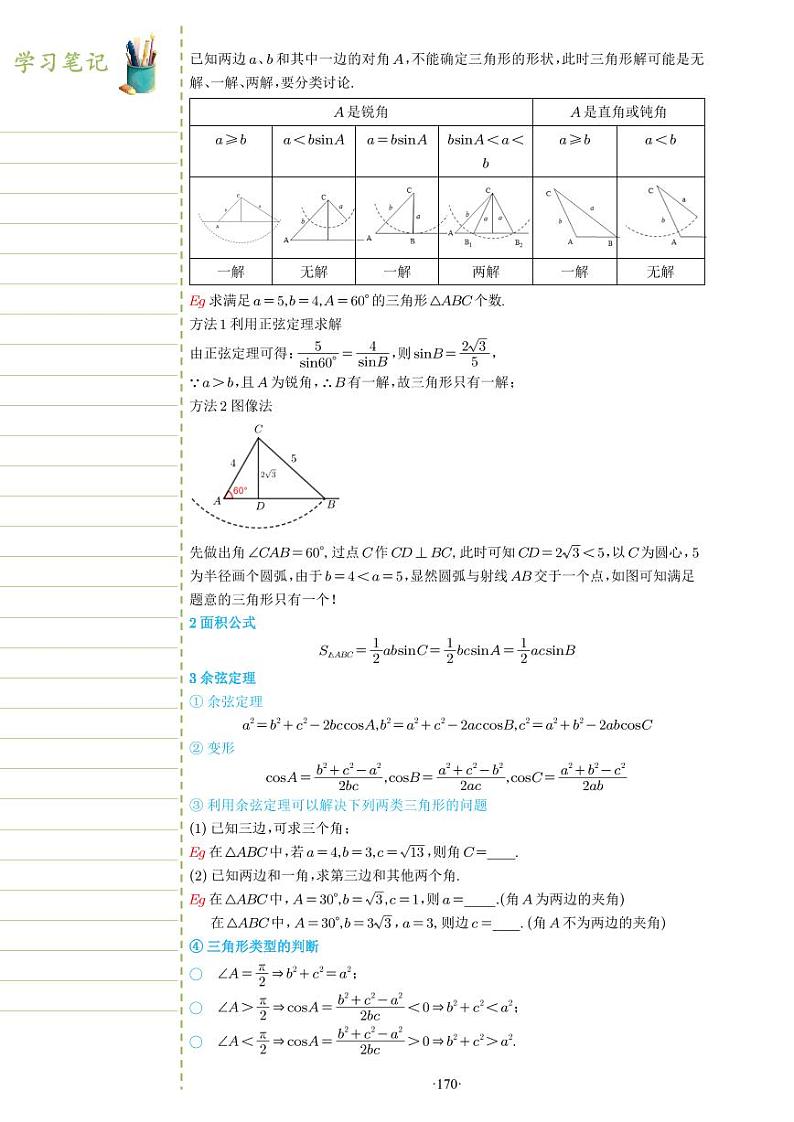 学习笔记
已知两边a、b和其中一边的对角A,不能确定三角形的形状,此时三角形解可能是无
解、一解、两解,要分类讨论.
A是锐角 A是直角或钝角
a⩾b a<bsinA a=bsinA bsinA<a<b a⩾b a<b
C A b a
C A b a
C A B b a
C A B₁ B₂ b a a
C A B b a
C A b a
一解 无解 一解 两解 一解 无解
Eg 求满足a=5,b=4,A=60°的三角形△ABC个数.
方法1 利用正弦定理求解
由正弦定理可得:5/sin60°=4/sinB,则sinB=2√3/5,
∵a>b,且A为锐角,∴B有一解,故三角形只有一解;
方法2 图像法
C
4 5
2√3
60°
A D B
先做出角∠CAB=60°,过点C作CD⊥BC,此时可知CD=2√3<5,以C为圆心,5
为半径画个圆弧,由于b=4<a=5,显然圆弧与射线AB交于一个点,如图可知满足
题意的三角形只有一个!
2 面积公式
S△ABC=1/2absinC=1/2bcsinA=1/2acsinB
3 余弦定理
① 余弦定理
a²=b²+c²-2bccosA,b²=a²+c²-2accosB,c²=a²+b²-2abcosC
② 变形
cosA=(b²+c²-a²)/2bc,cosB=(a²+c²-b²)/2ac,cosC=(a²+b²-c²)/2ab
③ 利用余弦定理可以解决下列两类三角形的问题
(1) 已知三边,可求三个角;
Eg 在△ABC中,若a=4,b=3,c=√13,则角C=____.
(2) 已知两边和一角,求第三边和其他两个角.
Eg 在△ABC中,A=30°,b=√3,c=1,则a=____.(角A为两边的夹角)
在△ABC中,A=30°,b=3√3,a=3,则边c=____.(角A不为两边的夹角)
④ 三角形类型的判断
○ ∠A=π/2⇒b²+c²=a²;
○ ∠A>π/2⇒cosA=(b²+c²-a²)/2bc<0⇒b²+c²<a²;
○ ∠A<π/2⇒cosA=(b²+c²-a²)/2bc>0⇒b²+c²>a².
·170·